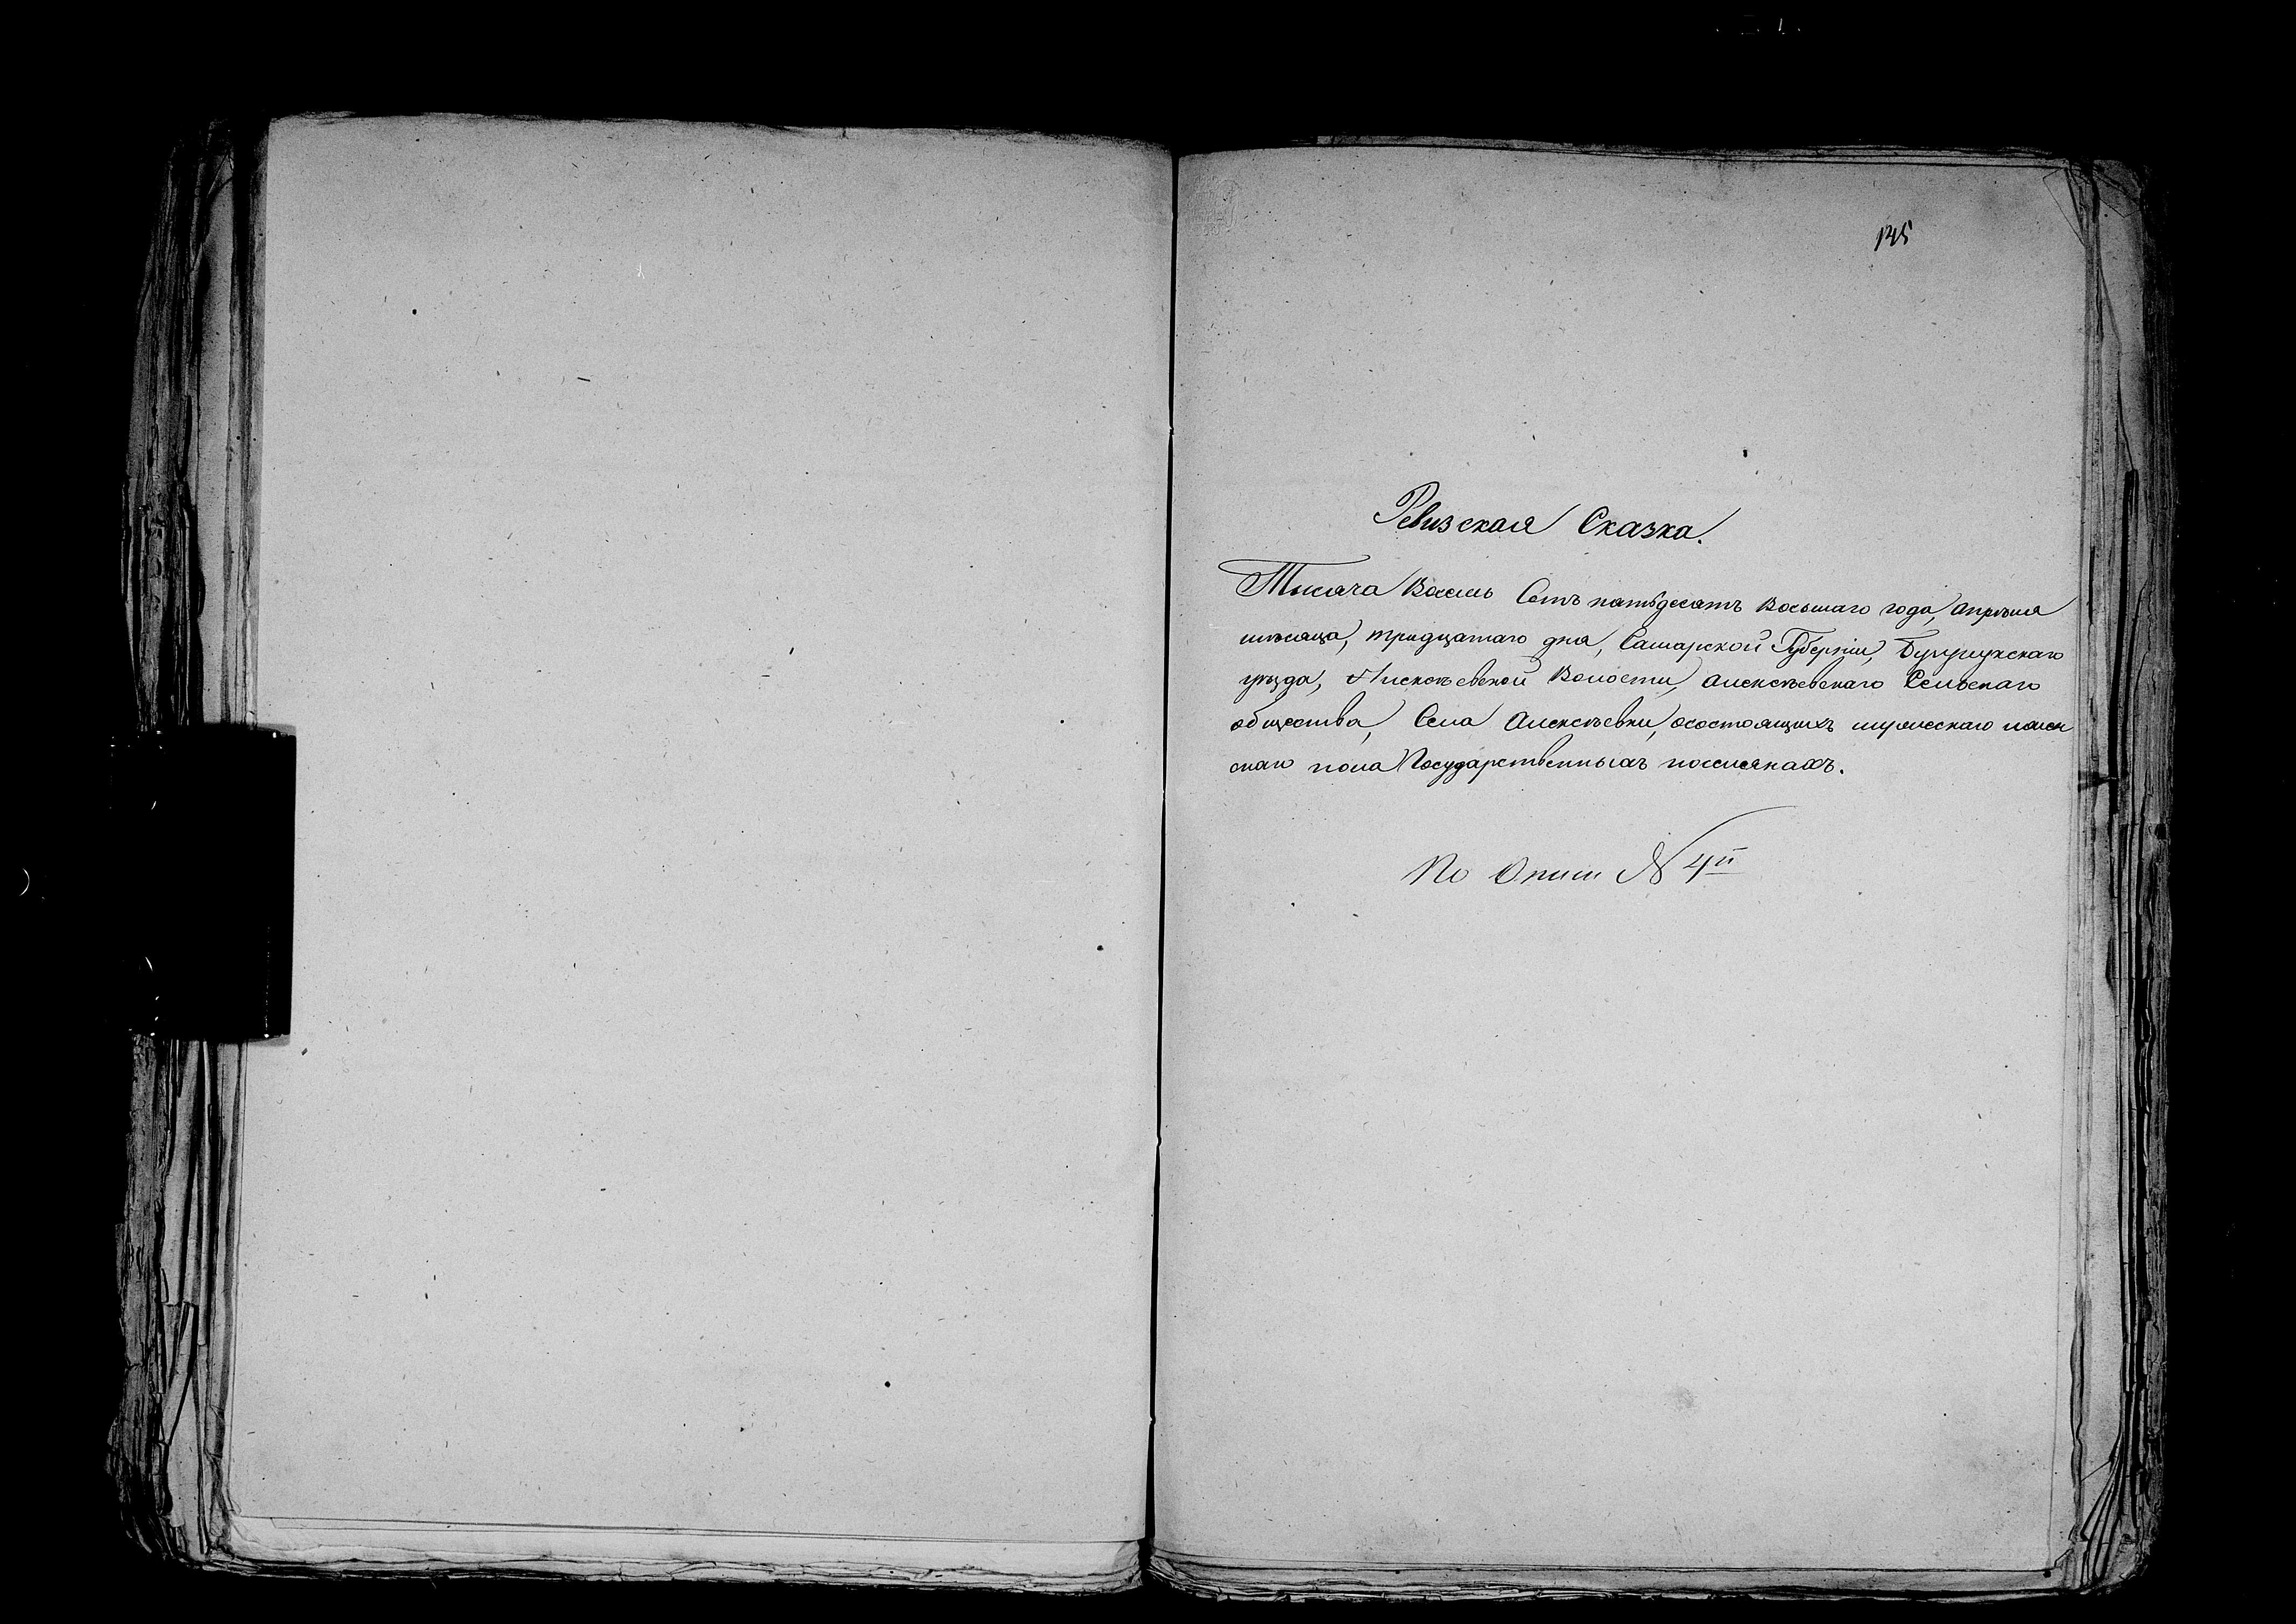 145
Ревизская Сказка.
Тысяча Восемь Сотъ пятьдесятъ Восьмаго года, Апрѣля
мѣсяца, тридцатаго дня, Самарской Губерніи, Бузулукскаго
уѣзда, Алексѣевской Волости, Алексѣевскаго Сельскаго
общества, Села Алексѣевки, осостоящихъ мужескаго и женс
скаго пола Государственныхъ поселянахъ.
По Описи № 4й